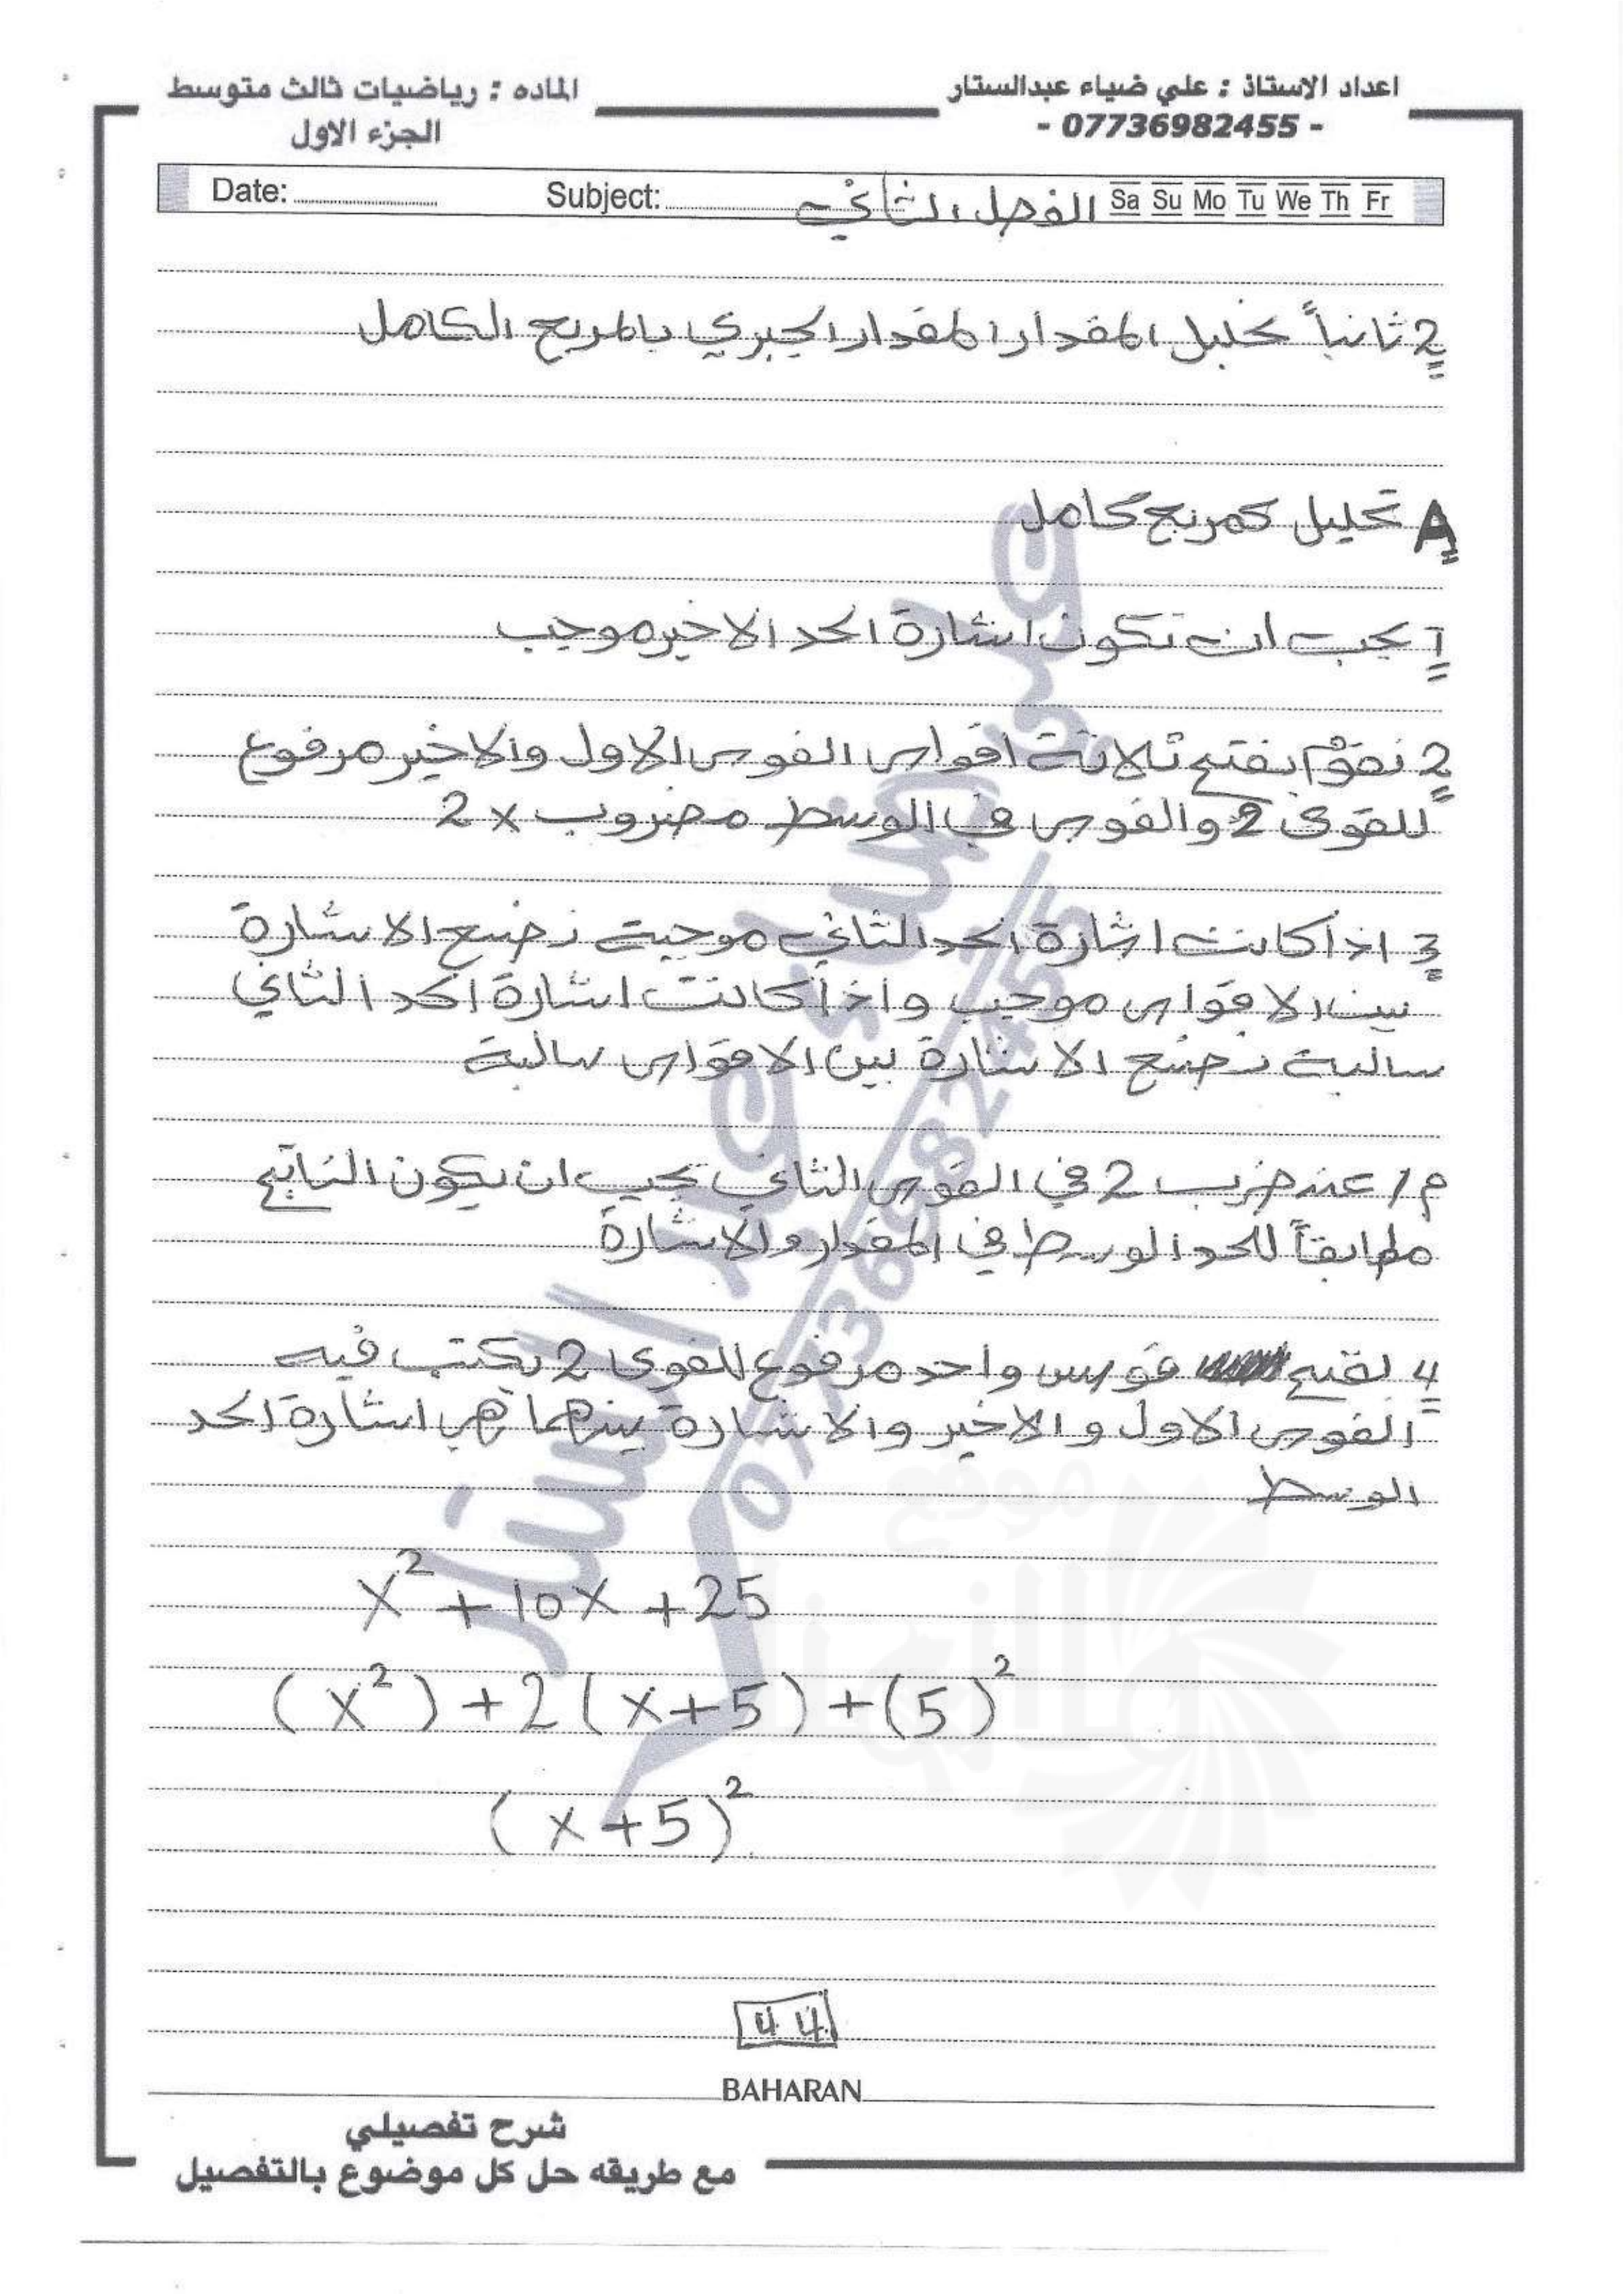 اعداد الاستاذ : علي ضياء عبدالستار
- 07736982455 -
الماده : رياضيات ثالث متوسط
الجزء الاول
Date: Subject: الفصل الثاني Sa Su Mo Tu We Th Fr
2 ثانياً تحليل المقدار المقدار الجبري بالمربع الكامل
A تحليل كمربع كامل
1 يجب ان تكون اشارة الحد الاخير موجب
2 نقوم بفتح ثلاثة اقواس القوس الاول والاخير مرفوع
للقوى 2 والقوس في الوسط مضروب x 2
3 اذا كانت اشارة الحد الثاني موجبة نضع الاشارة
بين الاقواس موجب واذا كانت اشارة الحد الثاني
سالبة نضع الاشارة بين الاقواس سالبة
م / عند ضرب 2 في القوس الثاني يجب ان يكون الناتج
مطابقاً للحد الوسط في المقدار والاشارة
4 نفتح قوس واحد مرفوع للقوى 2 نكتب فيه
القوس الاول والاخير والاشارة بينهما هي اشارة الحد
الوسط
x² + 10x + 25
(x²) + 2(x+5) + (5)²
(x+5)²
44
BAHARAN
شرح تفصيلي
مع طريقه حل كل موضوع بالتفصيل
علي ضياء عبد الستار
07736982455
موقع